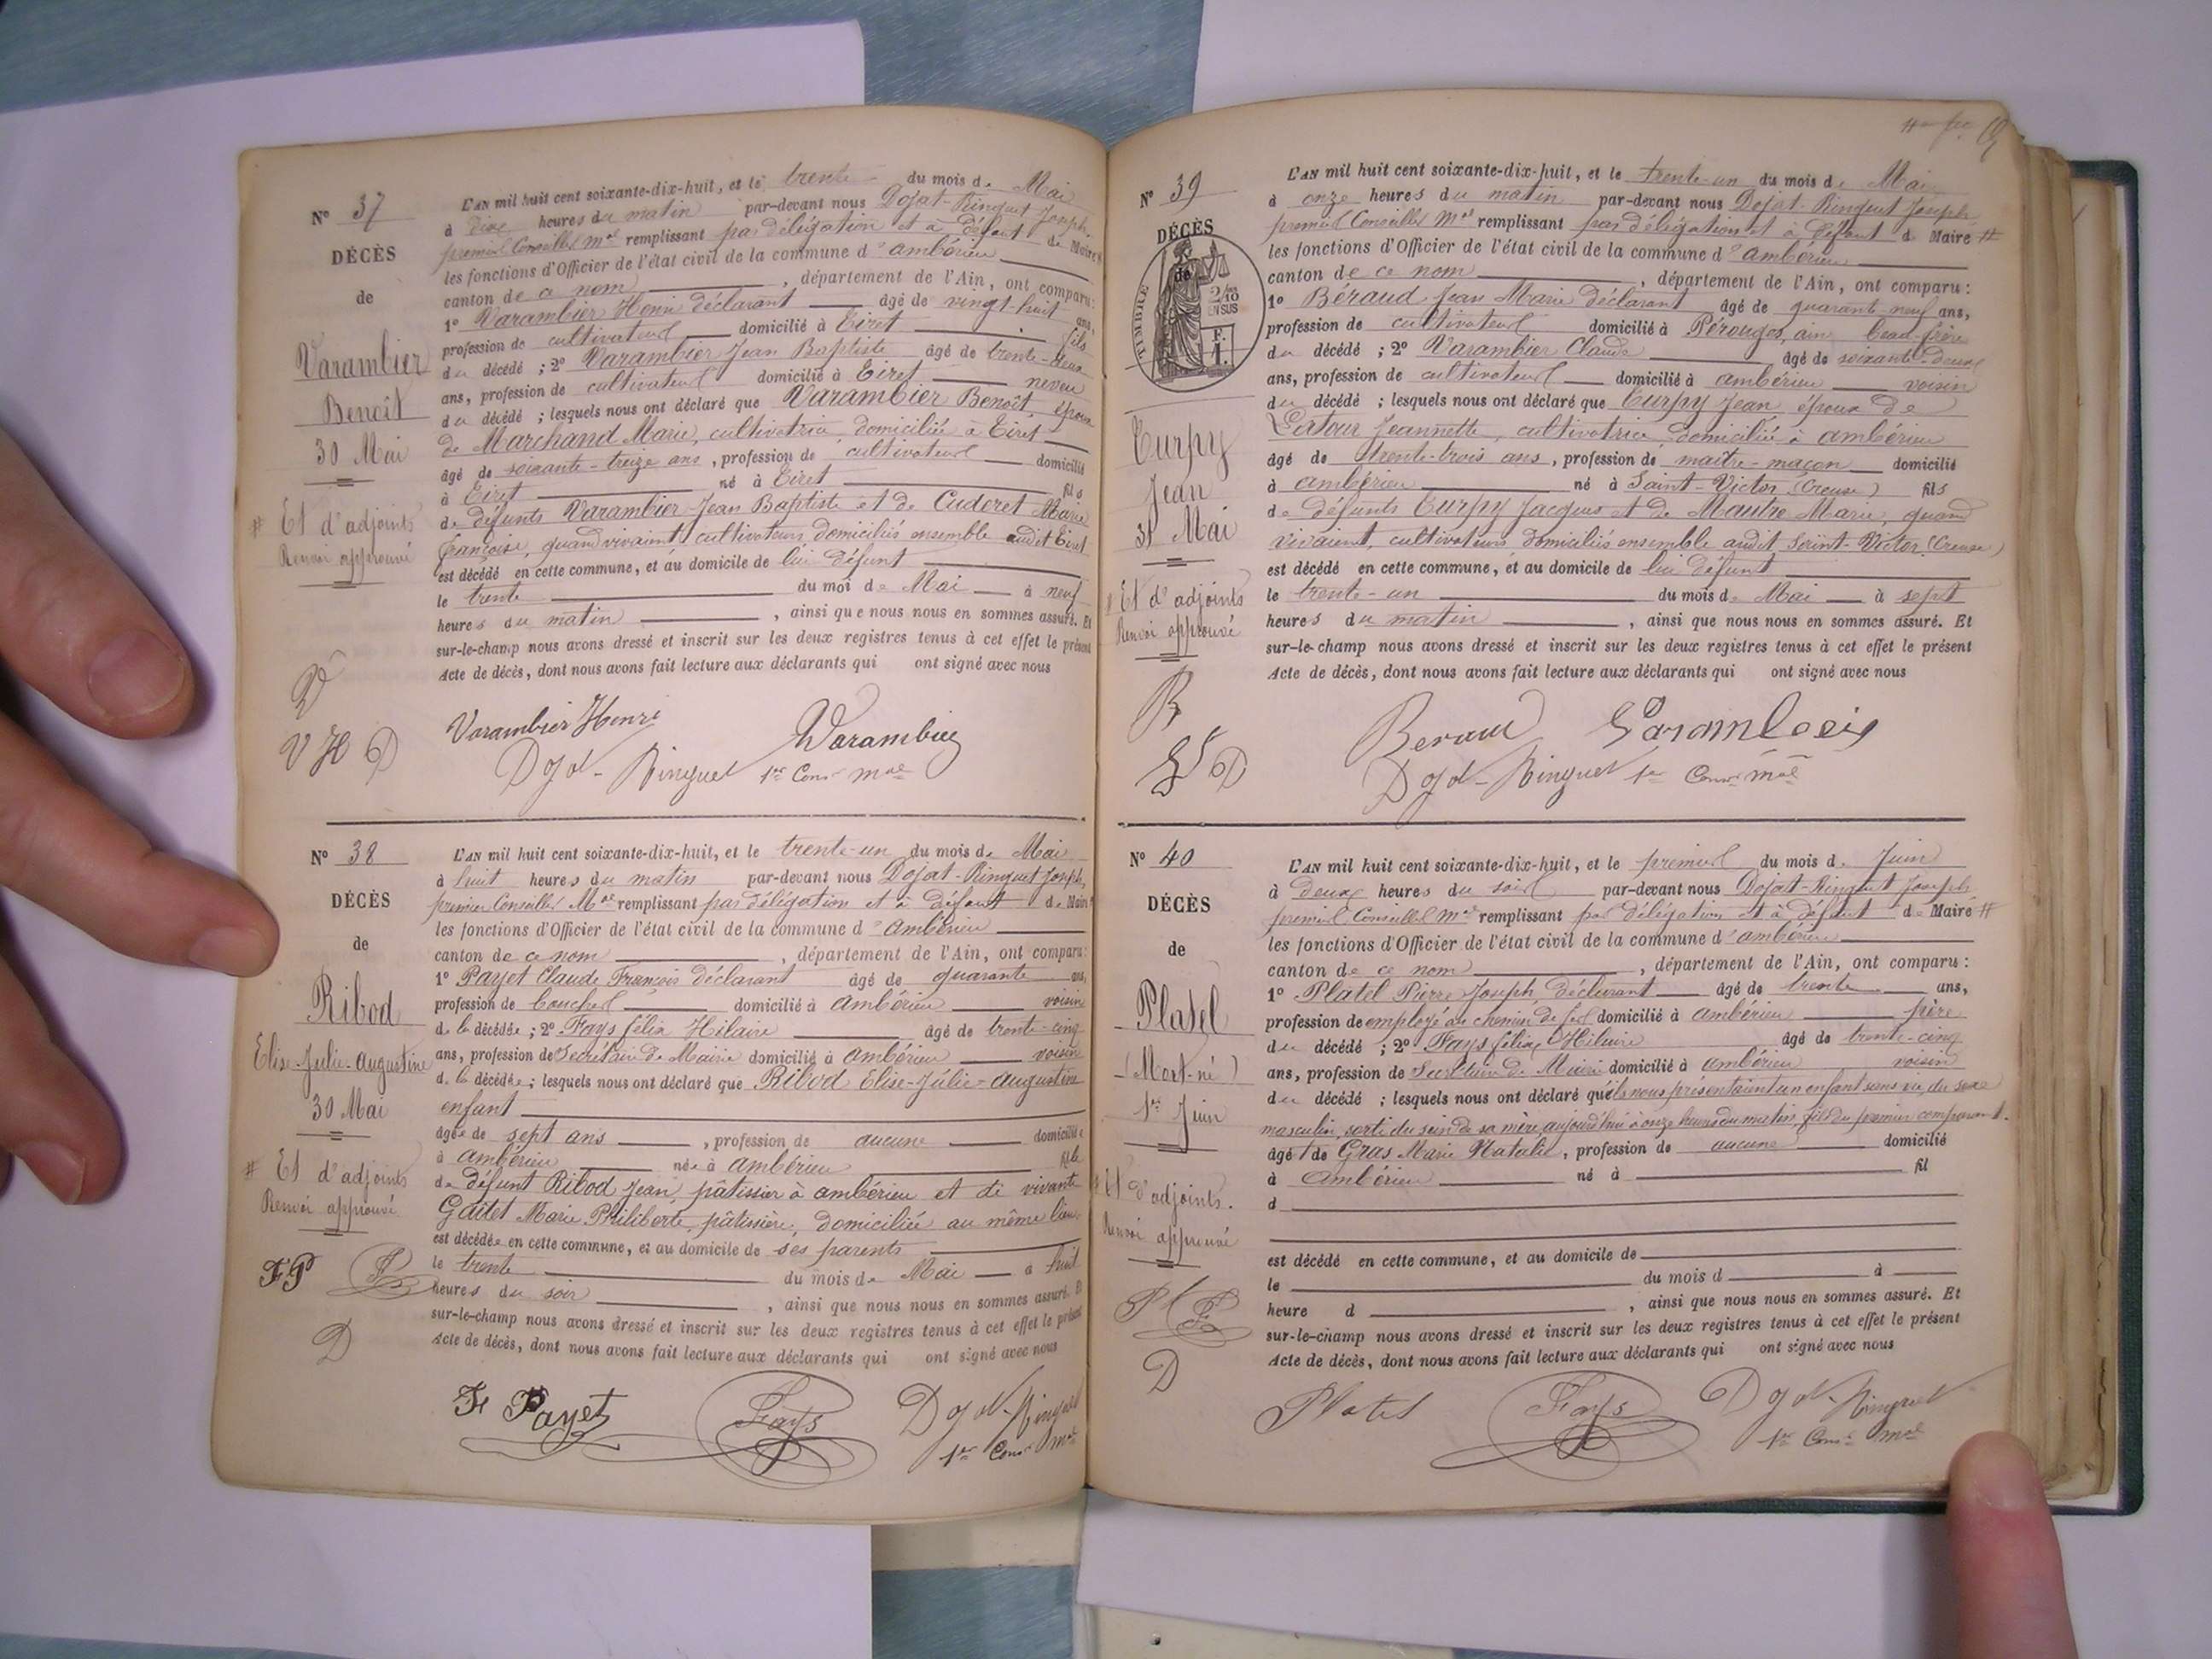 N° 37
DÉCÈS
de
Varambier
Benoît
30 Mai
# Et d'adjoints
Renvoi approuvé
V
V H D
L'AN mil huit cent soixante-dix-huit, et le trente du mois de Mai
à dix heures du matin par-devant nous Dojat-Ringuet Joseph,
premier Conseiller Mal remplissant par délégation et à défaut de Maire #
les fonctions d'Officier de l'état civil de la commune d'ambérieu
canton de ce nom, département de l'Ain, ont comparu:
1° Varambier Henri déclarant âgé de vingt-huit ans,
profession de cultivateur domicilié à Tiret fils
du décédé ; 2° Varambier Jean Baptiste âgé de trente-deux
ans, profession de cultivateur domicilié à Tiret neveu
du décédé ; lesquels nous ont déclaré que Varambier Benoît, époux
de Marchand Marie, cultivatrice, domiciliée à Tiret
âgé de soixante-treize ans, profession de cultivateur domicilié
à Tiret né à Tiret fils
de défunts Varambier Jean Baptiste et de Cuderet Marie
françoise, quand vivaient cultivateurs domiciliés ensemble audit Tiret
est décédé en cette commune, et au domicile de lui défunt
le trente du moi de Mai à neuf
heures du matin, ainsi que nous nous en sommes assuré. Et
sur-le-champ nous avons dressé et inscrit sur les deux registres tenus à cet effet le présent
Acte de décès, dont nous avons fait lecture aux déclarants qui ont signé avec nous
Varambier Henri Varambier
Dojat-Ringuet 1er Conser mal
N° 38
DÉCÈS
de
Ribod
Elise-Julie-augustine
30 Mai
# Et d'adjoints
Renvoi approuvé
FP
D
L'AN mil huit cent soixante-dix-huit, et le trente-un du mois de Mai
à huit heures du matin par-devant nous Dojat-Ringuet Joseph,
premier Conseiller Mal remplissant par délégation et à défaut de Maire #
les fonctions d'Officier de l'état civil de la commune d'ambérieu
canton de ce nom, département de l'Ain, ont comparu:
1° Payet Claude François déclarant âgé de quarante ans,
profession de boucher domicilié à ambérieu voisin
de la décédée ; 2° Fays félix Hilaire âgé de trente-cinq
ans, profession de Secrétaire de Mairie domicilié à ambérieu voisin
de la décédée ; lesquels nous ont déclaré que Ribod Elise-Julie-augustine
enfant
âgée de sept ans, profession de aucune domiciliée
à ambérieu née à ambérieu fille
de défunt Ribod Jean, pâtissier à ambérieu et de vivante
Gaitet Marie Philiberte, pâtissière, domiciliée au même lieu
est décédée en cette commune, et au domicile de ses parents
le trente du mois de Mai à huit
heures du soir, ainsi que nous nous en sommes assuré. Et
sur-le-champ nous avons dressé et inscrit sur les deux registres tenus à cet effet le présent
Acte de décès, dont nous avons fait lecture aux déclarants qui ont signé avec nous
Payet Fays Dojat-Ringuet
1er Conser mal
N° 39
DÉCÈS
de
TIMBRE
2/10 EN SUS
F. 1.
Turpy
Jean
31 Mai
# Et d'adjoints
Renvoi approuvé
B
D
L'AN mil huit cent soixante-dix-huit, et le trente-un du mois de Mai
à onze heures du matin par-devant nous Dojat-Ringuet Joseph
premier Conseiller Mal remplissant par délégation et à défaut de Maire #
les fonctions d'Officier de l'état civil de la commune d'ambérieu
canton de ce nom, département de l'Ain, ont comparu:
1° Béraud Jean Marie déclarant âgé de quarante-neuf ans,
profession de cultivateur domicilié à Pérouges, ain beau-frère
du décédé ; 2° Varambier Claude âgé de soixante-deux
ans, profession de cultivateur domicilié à ambérieu voisin
du décédé ; lesquels nous ont déclaré que Turpy Jean, époux de
Jeannette, cultivatrice, domiciliée à ambérieu
âgé de trente-trois ans, profession de maître-maçon domicilié
à ambérieu né à Saint-Victor (Creuse) fils
de défunts Turpy Jacques et de Mautre Marie, quand
vivaient, cultivateurs domiciliés ensemble audit Saint-Victor (Creuse)
est décédé en cette commune, et au domicile de lui défunt
le trente-un du mois de Mai à sept
heures du matin, ainsi que nous nous en sommes assuré. Et
sur-le-champ nous avons dressé et inscrit sur les deux registres tenus à cet effet le présent
Acte de décès, dont nous avons fait lecture aux déclarants qui ont signé avec nous
Beraud
Dojat-Ringuet 1er Conser mal
N° 40
DÉCÈS
de
Platel
(Mort-né)
1er Juin
# Et d'adjoints.
Renvoi approuvé
D
L'AN mil huit cent soixante-dix-huit, et le premier du mois de Juin
à deux heures du soir par-devant nous Dojat-Ringuet Joseph
premier Conseiller Mal remplissant par délégation et à défaut de Maire #
les fonctions d'Officier de l'état civil de la commune d'ambérieu
canton de ce nom, département de l'Ain, ont comparu:
1° Platel Pierre Joseph, Déclarant âgé de trente ans,
profession de employé au chemin de fer domicilié à ambérieu père
du décédé ; 2° Fays félix Hilaire âgé de trente-cinq
ans, profession de Secrétaire de Mairie domicilié à ambérieu voisin
du décédé ; lesquels nous ont déclaré qu'ils nous présentaient un enfant sans vie, du sexe
masculin, sorti du sein de sa mère, aujourd'hui à onze heures du matin, fils du premier comparant.
âgé / de Gras Marie Natalie, profession de aucune domicilié
à Ambérieu né à fil
d
est décédé en cette commune, et au domicile de
le du mois d à
heure d, ainsi que nous nous en sommes assuré. Et
sur-le-champ nous avons dressé et inscrit sur les deux registres tenus à cet effet le présent
Acte de décès, dont nous avons fait lecture aux déclarants qui ont signé avec nous
Platel Fays Dojat-Ringuet
1er Conser mal